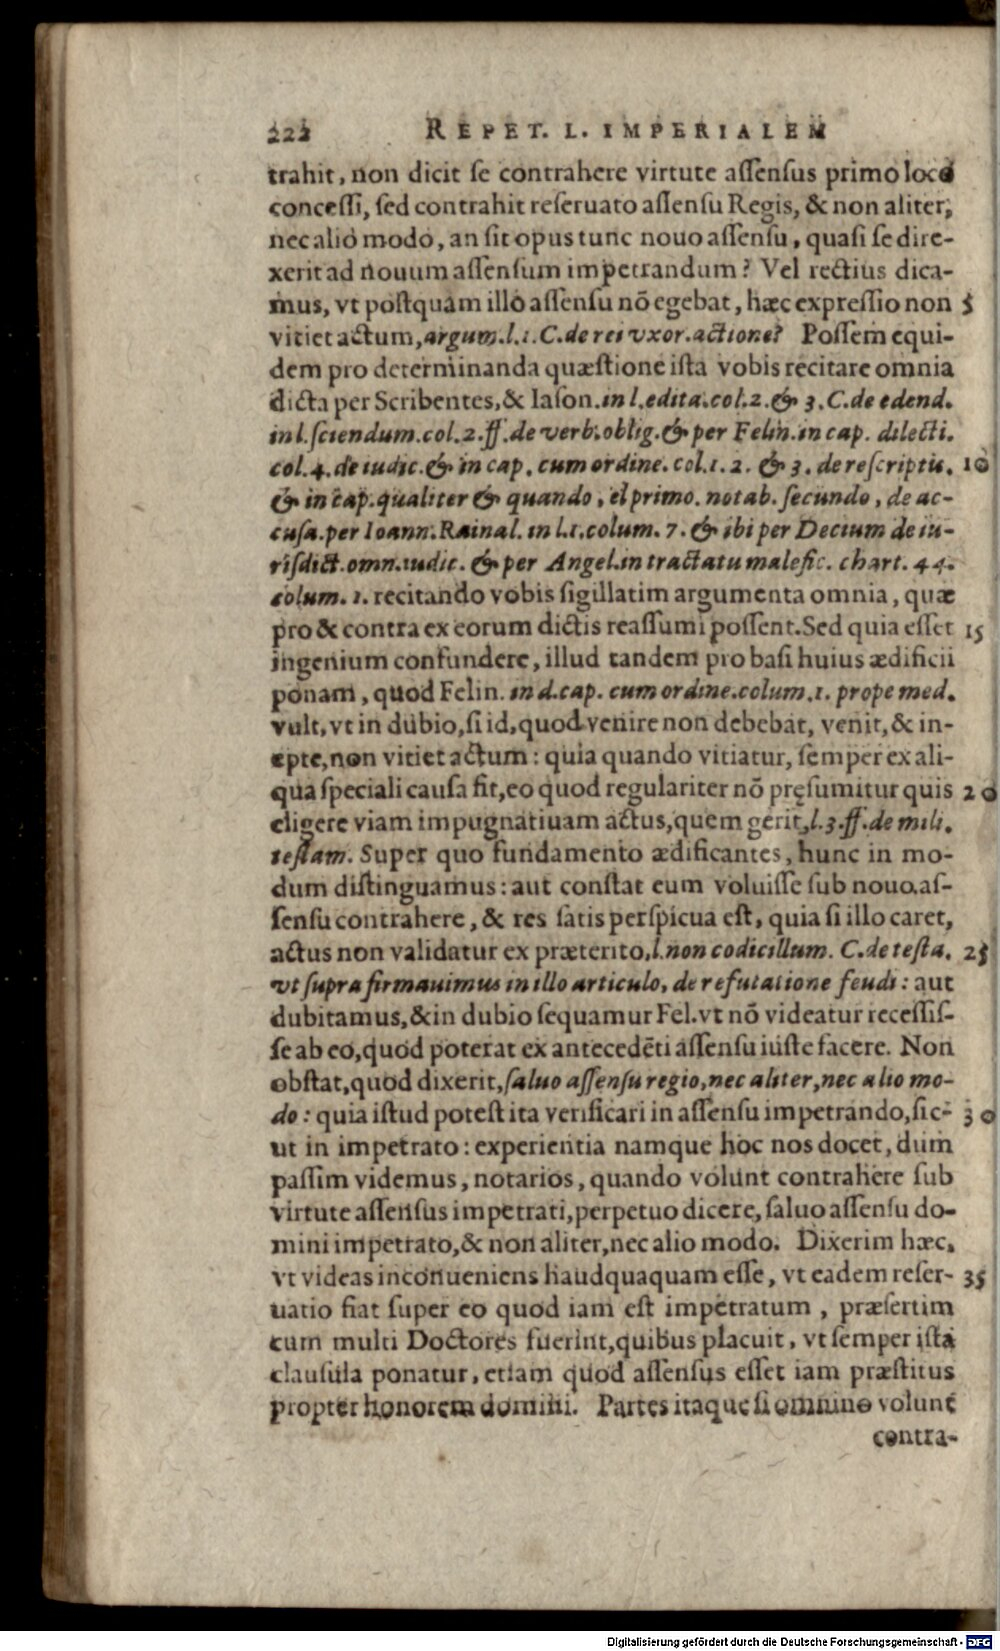 222 REPET. L. IMPERIALEM
trahit, non dicit se contrahere virtute assensus primo loco
concessi, sed contrahit reseruato assensu Regis, & non aliter,
nec alio modo, an sit opus tunc nouo assensu, quasi se dire-
xerit ad nouum assensum impetrandum? Vel rectius dica-
mus, vt postquam illo assensu nō egebat, hæc expressio non 5
vitiet actum, argum.l.1.C.de rei vxor.actione? Possem equi-
dem pro determinanda quæstione ista vobis recitare omnia
dicta per Scribentes,& Iason.in l.edita.col.2.& 3.C.de edend.
in l.sciendum.col.2.ff.de verb.oblig.& per Felin.in cap. dilecti.
col.4.de iudic.& in cap. cum ordine. col.1. 2. & 3. de rescriptis. 10
& in cap.qualiter & quando, el primo. notab. secundo, de ac-
cusa.per Ioann.Rainal. in l.1.colum. 7. & ibi per Decium de iu-
risdict.omn.iudic. & per Angel.in tractatu malefic. chart. 44.
colum. 1. recitando vobis sigillatim argumenta omnia, quæ
pro & contra ex eorum dictis reassumi possent.Sed quia esset 15
ingenium confundere, illud tandem pro basi huius ædificii
ponam, quod Felin. in d.cap. cum ordine.colum.1. prope med.
vult, vt in dubio, si id, quod venire non debebat, venit, & in-
epte, non vitiet actum: quia quando vitiatur, semper ex ali-
qua speciali causa fit, eo quod regulariter nō pręsumitur quis 20
eligere viam impugnatiuam actus, quem gerit, l.3.ff.de mili.
testam. Super quo fundamento ædificantes, hunc in mo-
dum distinguamus: aut constat eum voluisse sub nouo as-
sensu contrahere, & res satis perspicua est, quia si illo caret,
actus non validatur ex præterito, l.non codicillum. C.de testa. 25
vt supra firmauimus in illo articulo, de refutatione feudi: aut
dubitamus, & in dubio sequamur Fel. vt nō videatur recessis-
se ab eo, quod poterat ex antecedēti assensu iuste facere. Non
obstat, quod dixerit, saluo assensu regio, nec aliter, nec alio mo-
do: quia istud potest ita verificari in assensu impetrando, sic- 30
ut in impetrato: experientia namque hoc nos docet, dum
passim videmus, notarios, quando volunt contrahere sub
virtute assensus impetrati, perpetuo dicere, saluo assensu do-
mini impetrato, & non aliter, nec alio modo. Dixerim hæc,
vt videas inconueniens haudquaquam esse, vt eadem reser- 35
uatio fiat super eo quod iam est impetratum, præsertim
cum multi Doctores fuerint, quibus placuit, vt semper ista
clausula ponatur, etiam quod assensus esset iam præstitus
propter honorem domini. Partes itaque si omnino volunt
contra-
Digitalisierung gefördert durch die Deutsche Forschungsgemeinschaft - DFG